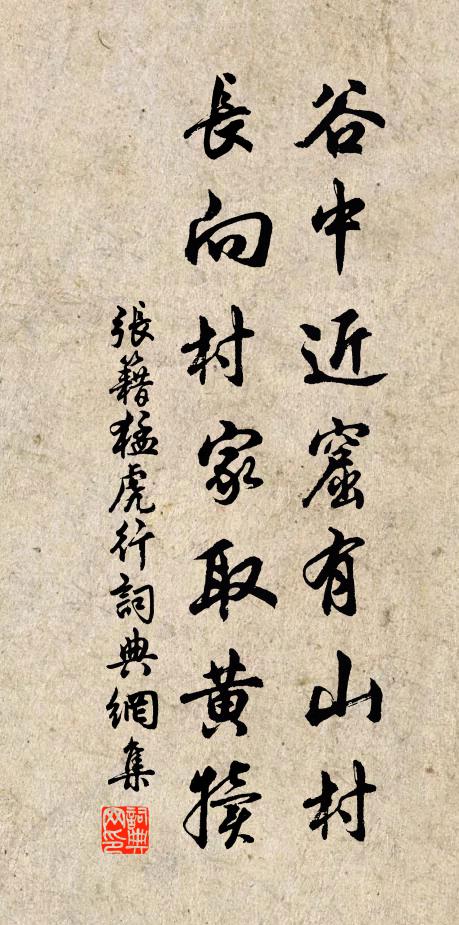 谷中近窟有山村
長向村家取黄犢
張籍猛虎行詞典網集
詞典網印